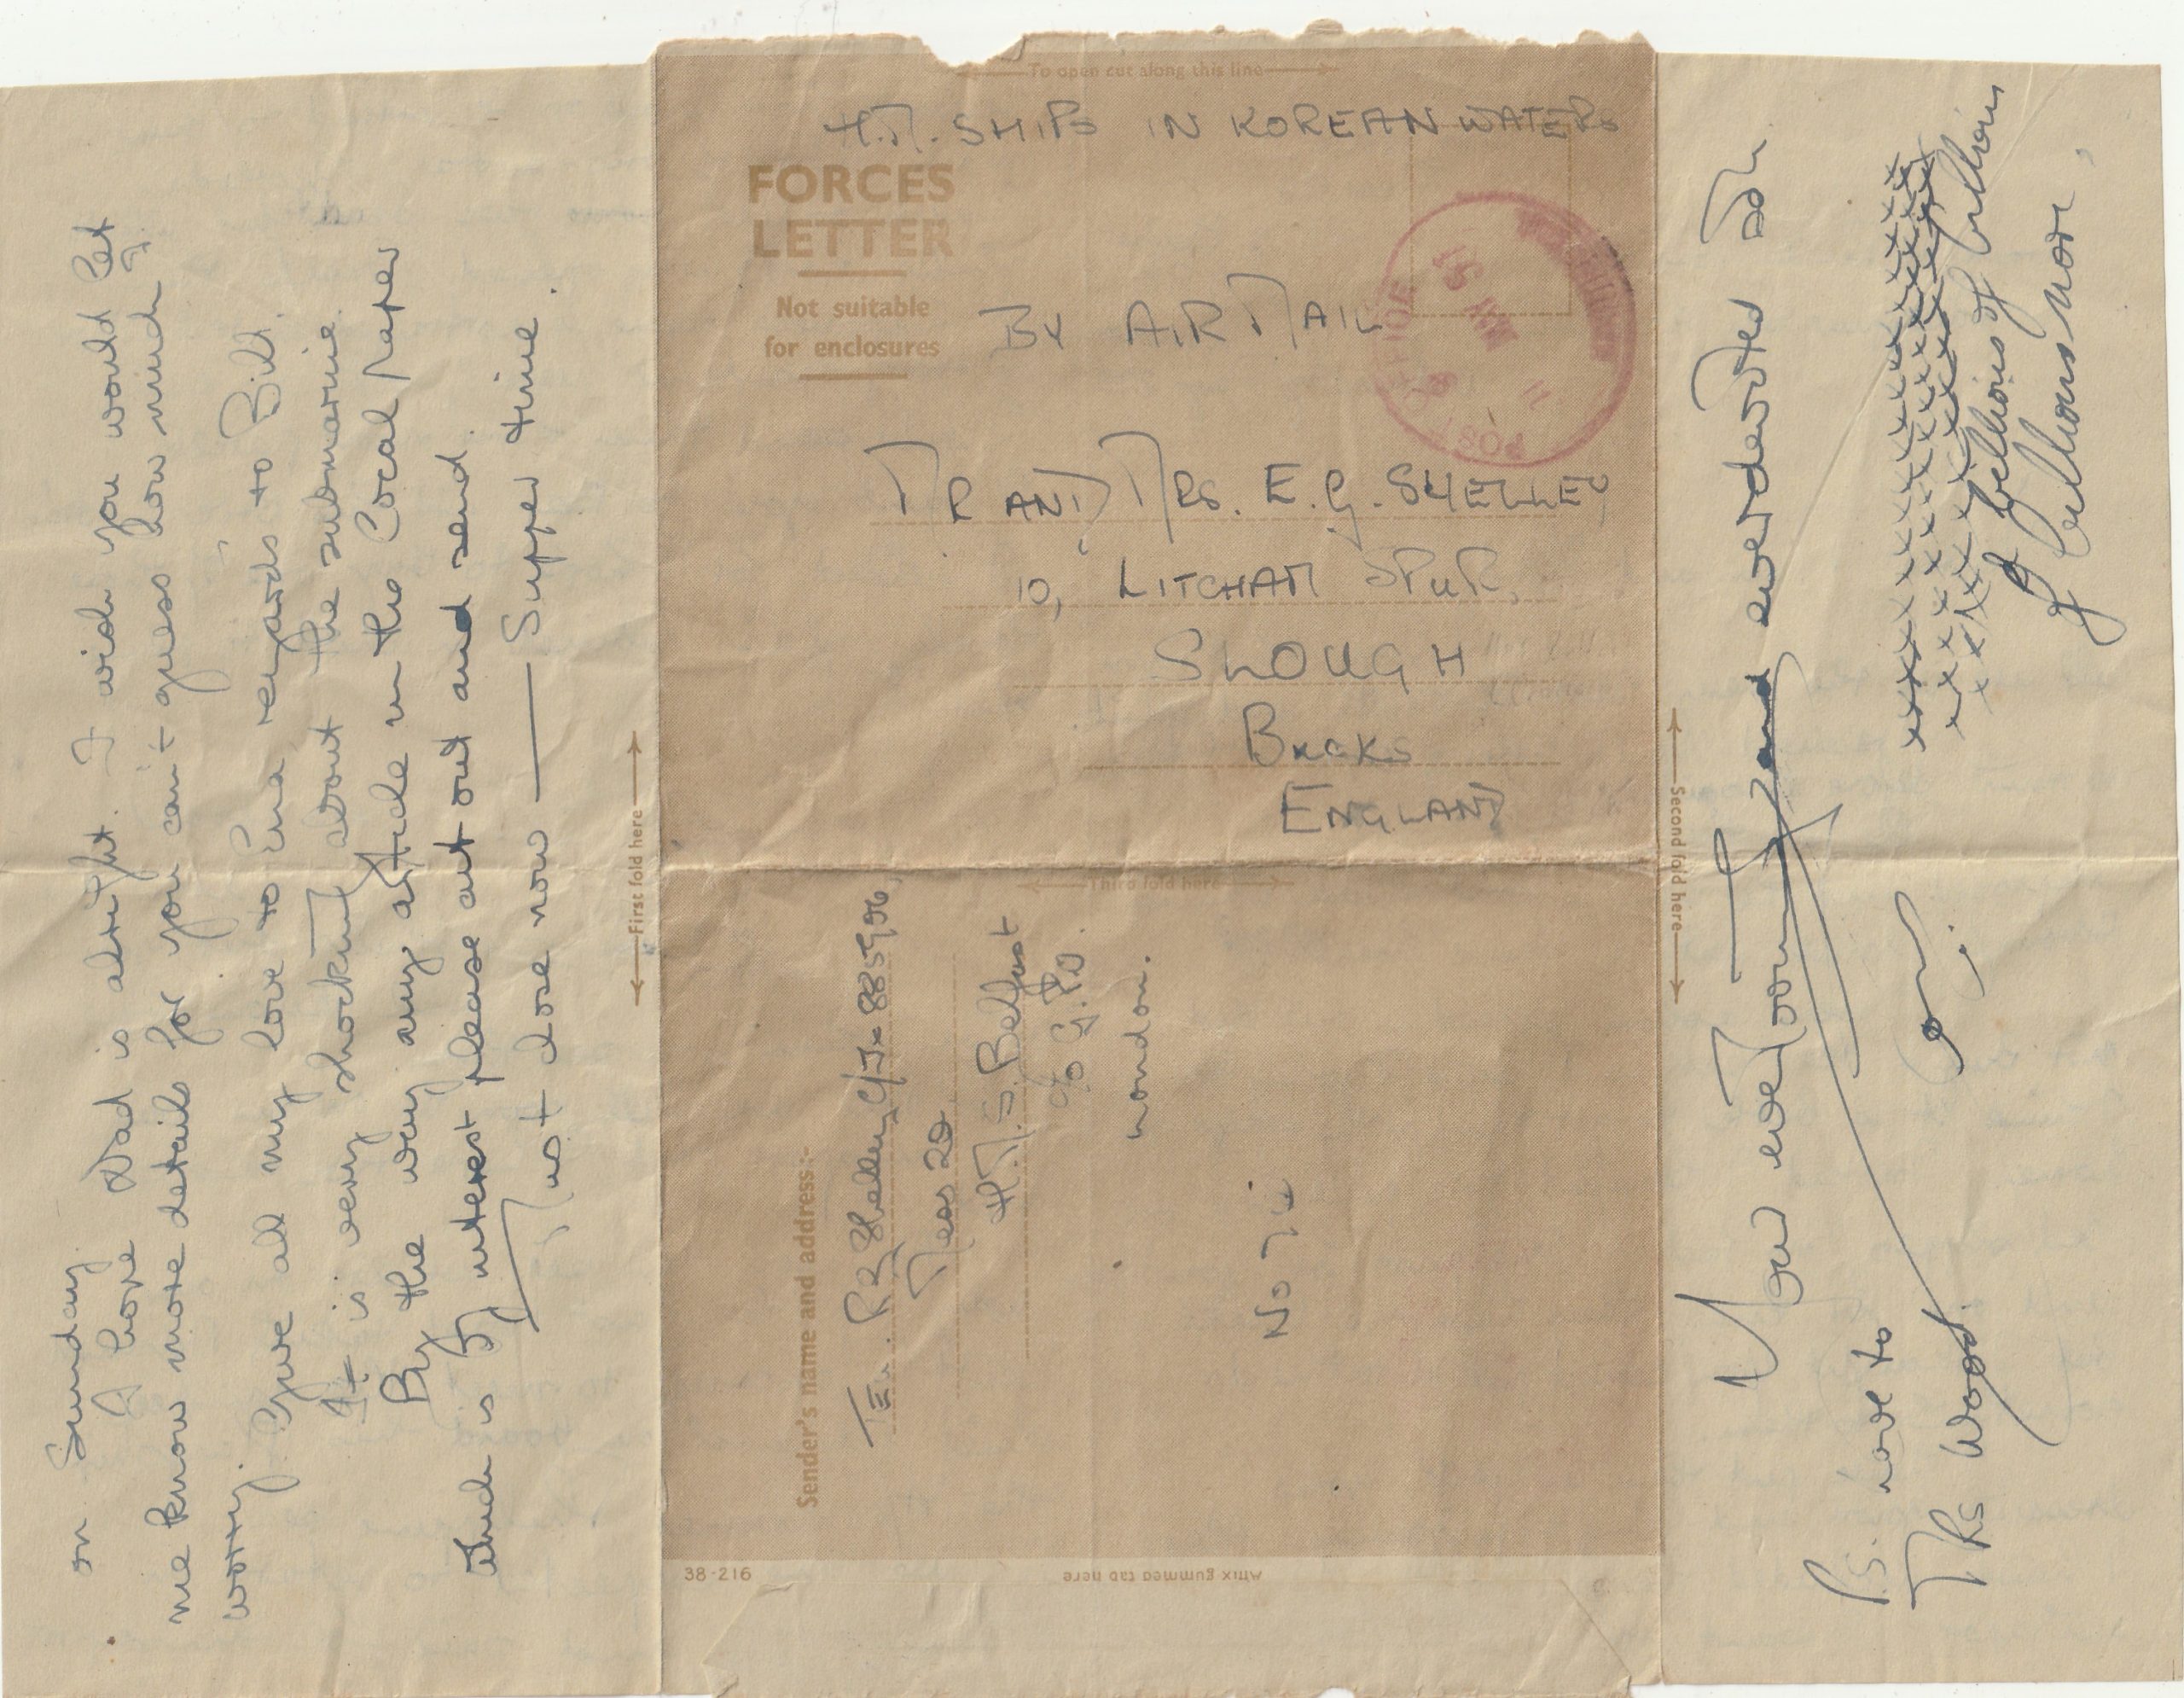 on Sunday.
I hope Dad is alright. I wish you would let
me know more details for you can't guess how much I
worry.
Give all my love to Ena regards to Bill.
It is very shocking about the submarine.
By the way any article in the Local paper
which is of interest please cut out and send.
Must close now — Supper time.
←First fold here→
To open cut along this line
H.M. SHIPS IN KOREAN WATERS
FORCES
LETTER
Not suitable
for enclosures
BY AIR MAIL
POST OFFICE
MR AND MRS. E.G. SHELLEY
10, LITCHAM SPUR,
SLOUGH
BUCKS
ENGLAND
Third fold here
Sender's name and address:-
Shelley
Mess 20
H.M.S. Belfast
c/o G.P.O.
London.
No
38-216
Affix gummed tab here
←Second fold here→
Your ever loving and ever devoted Son
P.S. Love to
Mrs Wood.
xxxxxxxxxxxxxxxx
xxxxxxxxxxxxxxxx
xxxxxxxxxxxxxxxx
& Millions of Millions
of Millions more.